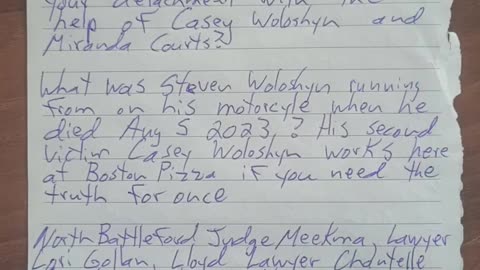 your detachment with the
help of Casey Woloshyn and
Miranda Courts?
What was Steven Woloshyn running
from on his motorcyle when he
died Aug 5 2023? His second
victim Casey Woloshyn works here
at Boston Pizza if you need the
truth for once
North Battleford Judge Meekma, Lawyer
Lori Gollan, Lloyd Lawyer Chantelle